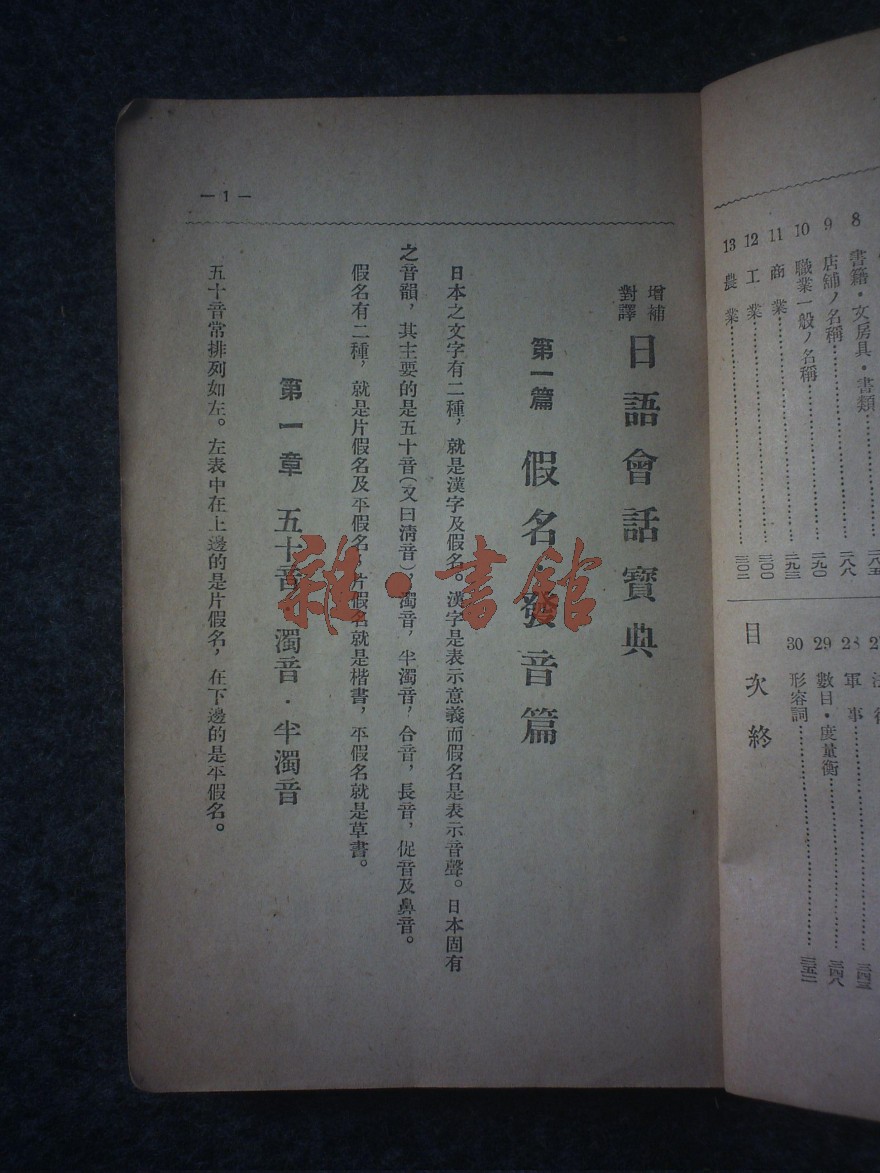 8 書籍・文房具・書類 二八五
9 店舖ノ名稱 二八八
10 職業一般ノ名稱 二九〇
11 商業 二九三
12 工業 三〇〇
13 農業 三〇二
28 軍事 三四三
29 數目・度量衡 三四八
30 形容詞 三五二
目次終
增補
對譯
日語會話寶典
第一篇 假名・發音篇
日本之文字有二種，就是漢字及假名。漢字是表示意義而假名是表示音聲。日本固有
之音韻，其主要的是五十音(又曰淸音)，濁音，半濁音，合音，長音，促音及鼻音。
假名有二種，就是片假名及平假名，片假名就是楷書，平假名就是草書。
第一章 五十音・濁音・半濁音
五十音常排列如左。左表中在上邊的是片假名，在下邊的是平假名。
— 1 —
雜・書館